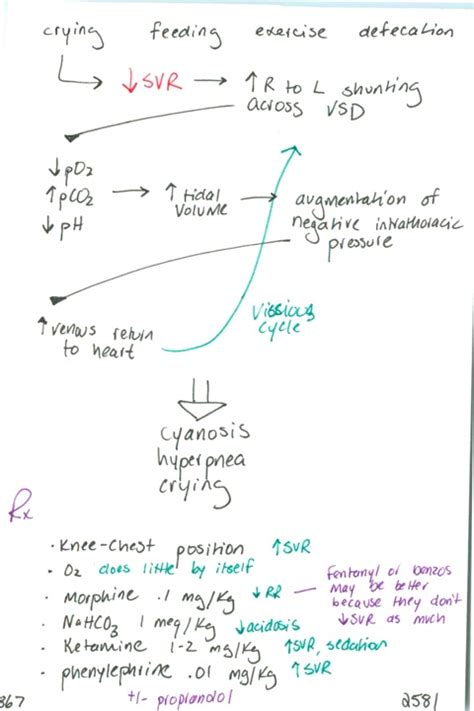 crying feeding exercise defecation
↓SVR → ↑R to L shunting
across VSD
↓pO2
↑pCO2 → ↑tidal → augmentation of
↓pH volume negative intrathoracic
pressure
↑venous return
to heart
Vissious
cycle
cyanosis
hyperpnea
crying
Rx
• Knee-Chest position ↑SVR
• O2 does little by itself
• Morphine .1 mg/kg ↓RR — Fentanyl or benzos
may be better
because they don't
↓SVR as much
• NaHCO3 1 meq/kg ↓acidosis
• Ketamine 1-2 mg/kg ↑SVR, sedation
• phenylephrine .01 mg/kg ↑SVR
+/- propranolol
867 2581